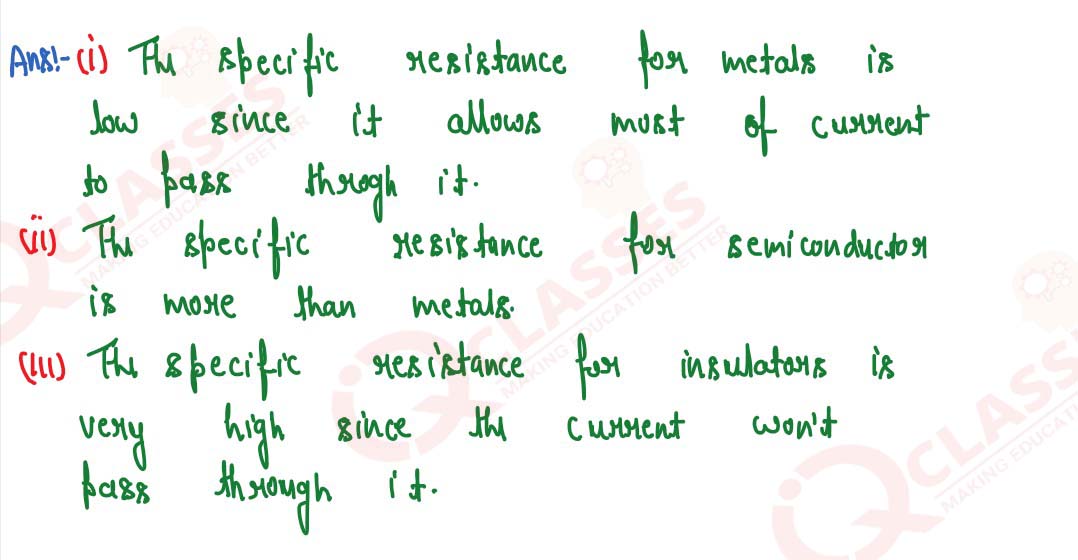 Ans:- (i) The specific resistance for metals is
low since it allows most of current
to pass throgh it.
(ii) The specific resistance for semiconductor
is more than metals.
(iii) The specific resistance for insulators is
very high since the current won't
pass through it.
CLASSES
MAKING EDUCATION BETTER
CLASSES
MAKING EDUCATION BETTER
CLASSES
MAKING EDUCAT